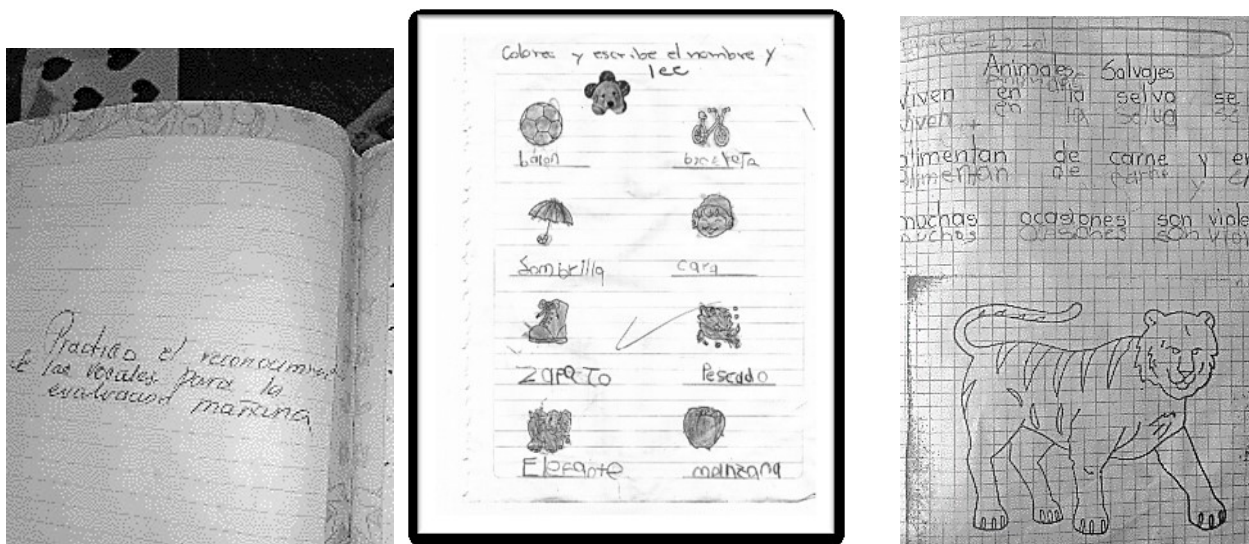 Practico el reconocimiento
de las vocales para la
evaluacion mañana
Colorea y escribe el nombre y
lee
balon
bicicleta
Sombrilla
cara
Zapato
Pescado
Elefante
manzana
Animales Salvajes
viven en la selva se
viven en la selva se
alimentan de carne y en
alimentan de carne y en
muchas ocasiones son viole
muchos ocasiones son viole